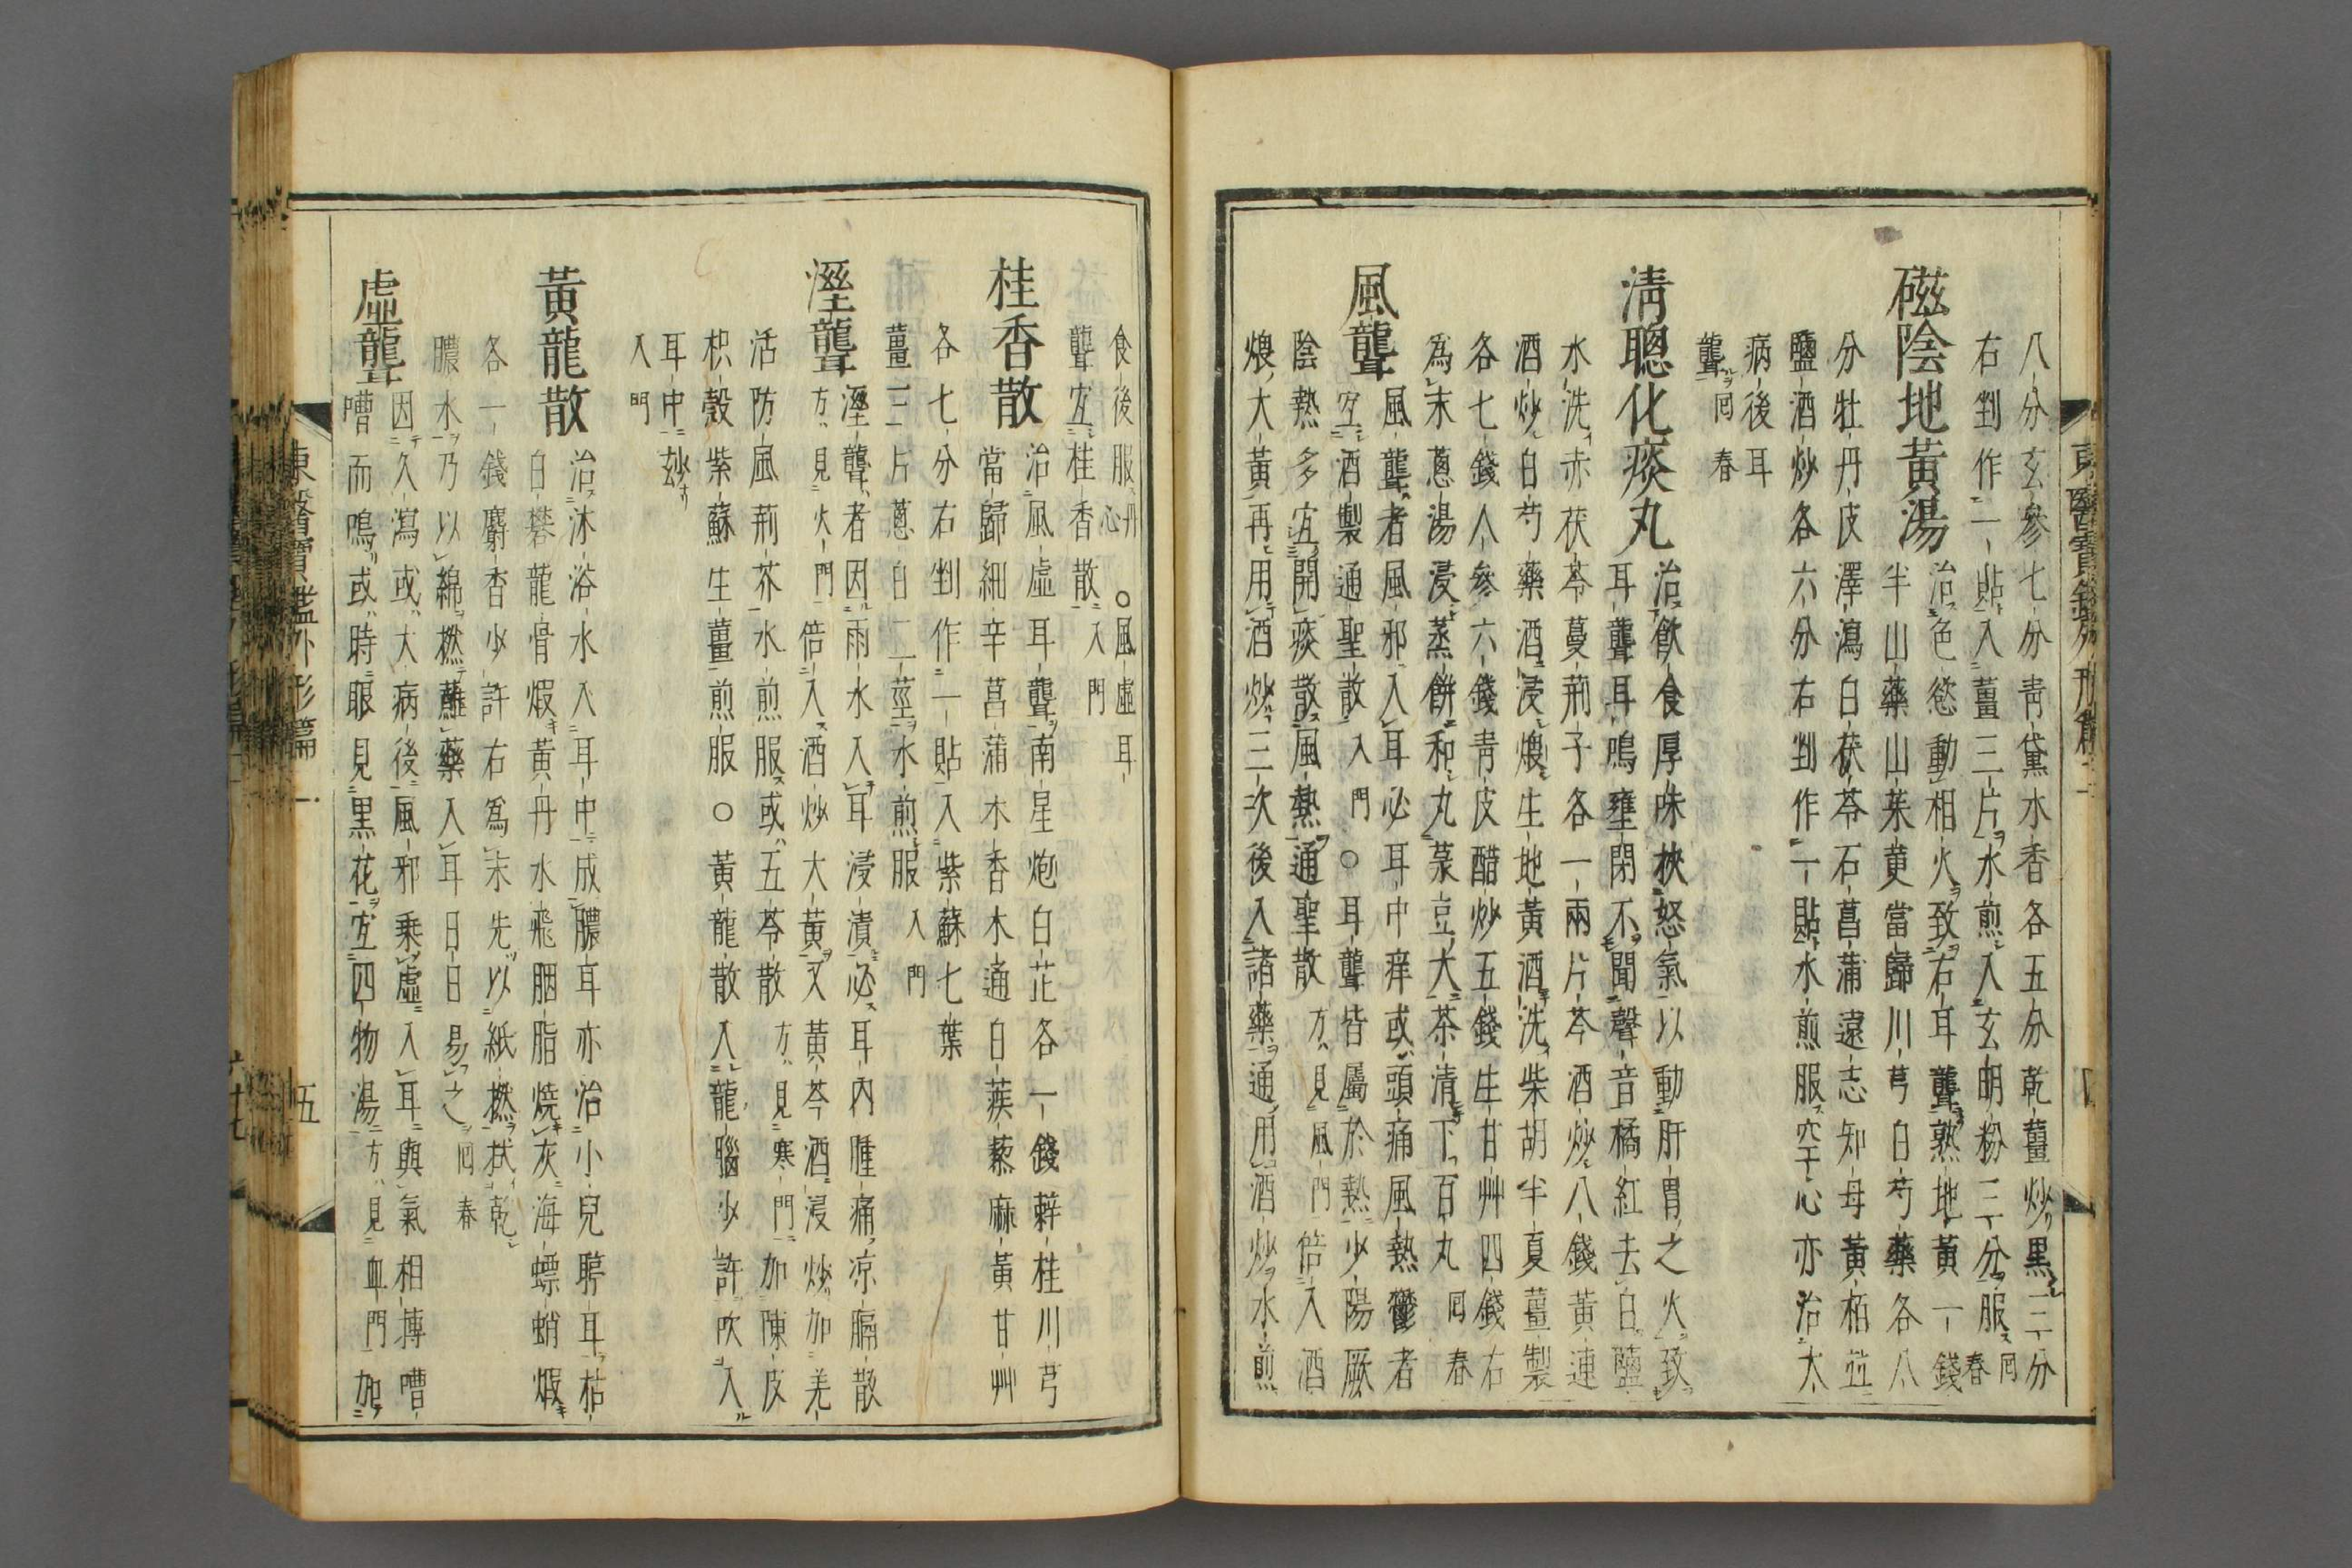 八分玄參七分靑黛水香各五分乾薑炒黑三分
右剉作一貼入薑三片水煎入玄明粉三分服囘春
磁陰地黃湯治色慾動相火致右耳聾熟地黃一錢
半山藥山茱萸當歸川芎白芍藥各八
分牡丹皮澤瀉白茯苓石菖蒲遠志知母黃栢並
鹽酒炒各六分右剉作一貼水煎服空心亦治大
病後耳
聾囘春
淸聰化痰丸治飮食厚味挾怒氣以動肝胃之火致
耳聾耳鳴壅閉不聞聲音橘紅去白鹽
水洗赤茯苓蔓荊子各一兩片芩酒炒八錢黃連
酒炒白芍藥酒浸煨生地黃酒洗柴胡半夏薑製
各七錢人參六錢靑皮醋炒五錢生甘艸四錢右
爲末蔥湯浸蒸餠和丸菉豆大茶淸下百丸囘春
風聾風聾者風邪入耳必耳中痒或頭痛風熱鬱者
宜酒製通聖散入門○耳聾皆屬於熱少陽厥
陰熱多宜開痰散風熱通聖散方見風門倍入酒
煨大黃再用酒炒三次後入諸藥通用酒炒水煎
食後服丹心○風虛耳
聾宜桂香散入門
桂香散治風虛耳聾南星炮白芷各一錢辣桂川芎
當歸細辛菖蒲木香木通白蒺藜麻黃甘艸
各七分右剉作一貼入紫蘇七葉
薑三片蔥白二莖水煎服入門
溼聾溼聾者因雨水入耳浸漬必耳內腫痛凉膈散
方見火門倍入酒炒大黃又黃芩酒浸炒加羌
活防風荊芥水煎服或五苓散方見寒門加陳皮
枳殼紫蘇生薑煎服○黃龍散入龍腦少許吹入
耳中玅
入門
黃龍散治沐浴水入耳中成膿耳亦治小兒聤耳枯
白礬龍骨煆黃丹水飛胭脂燒灰海螵蛸煆
各一錢麝香少許右爲末先以紙撚拭乾
膿水乃以綿撚蘸藥入耳日日易之囘春
虛聾因久瀉或大病後風邪乘虛入耳與氣相搏嘈
嘈而鳴或時眼見黑花宜四物湯方見血門加
東醫寶鑑外形篇二
五